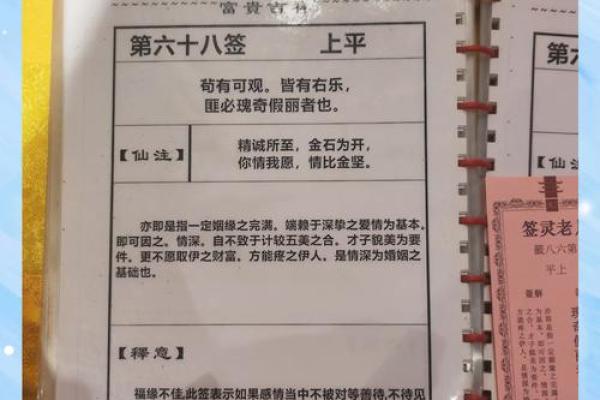 富貴吉祥
第六十八签 上平
荀有可观。皆有右乐，
匪必瑰奇假丽者也。
【仙注】
精诚所至，金石为开，
你情我愿，情比金坚。
亦即是指一定姻缘之完满。端赖于深挚之爱情为基本。
即可因之。情深。自不致于计较五美之合。才子貌美为要
件。更不愿取伊之财富。方能疼之伊人，是情深为婚姻之
基础也。
【释意】
福缘不佳,此签表示如果感情当中不被对等善待,不待见
第六
签灵老
籤八六第
平上
籤解